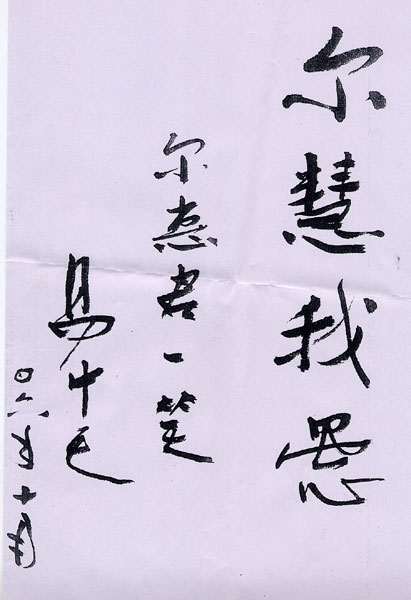 尔慧我愚
尔惠君一笑
易中天
〇六年十月